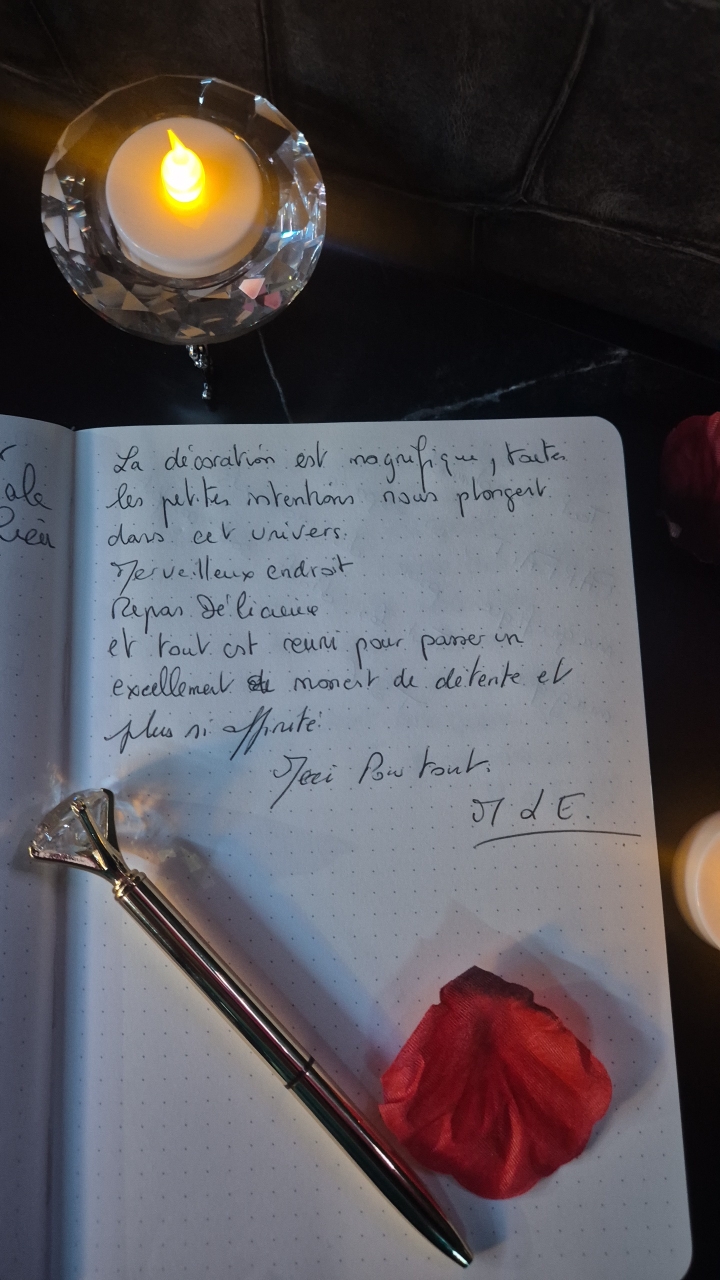 ale
Rien
La décoration est magnifique, toutes
les petites intentions nous plongent
dans cet univers.
Merveilleux endroit
Repas Délicieux
et tout est réuni pour passer un
excellement moment de détente et
plus si affinité.
Merci Pour tout.
M d E.